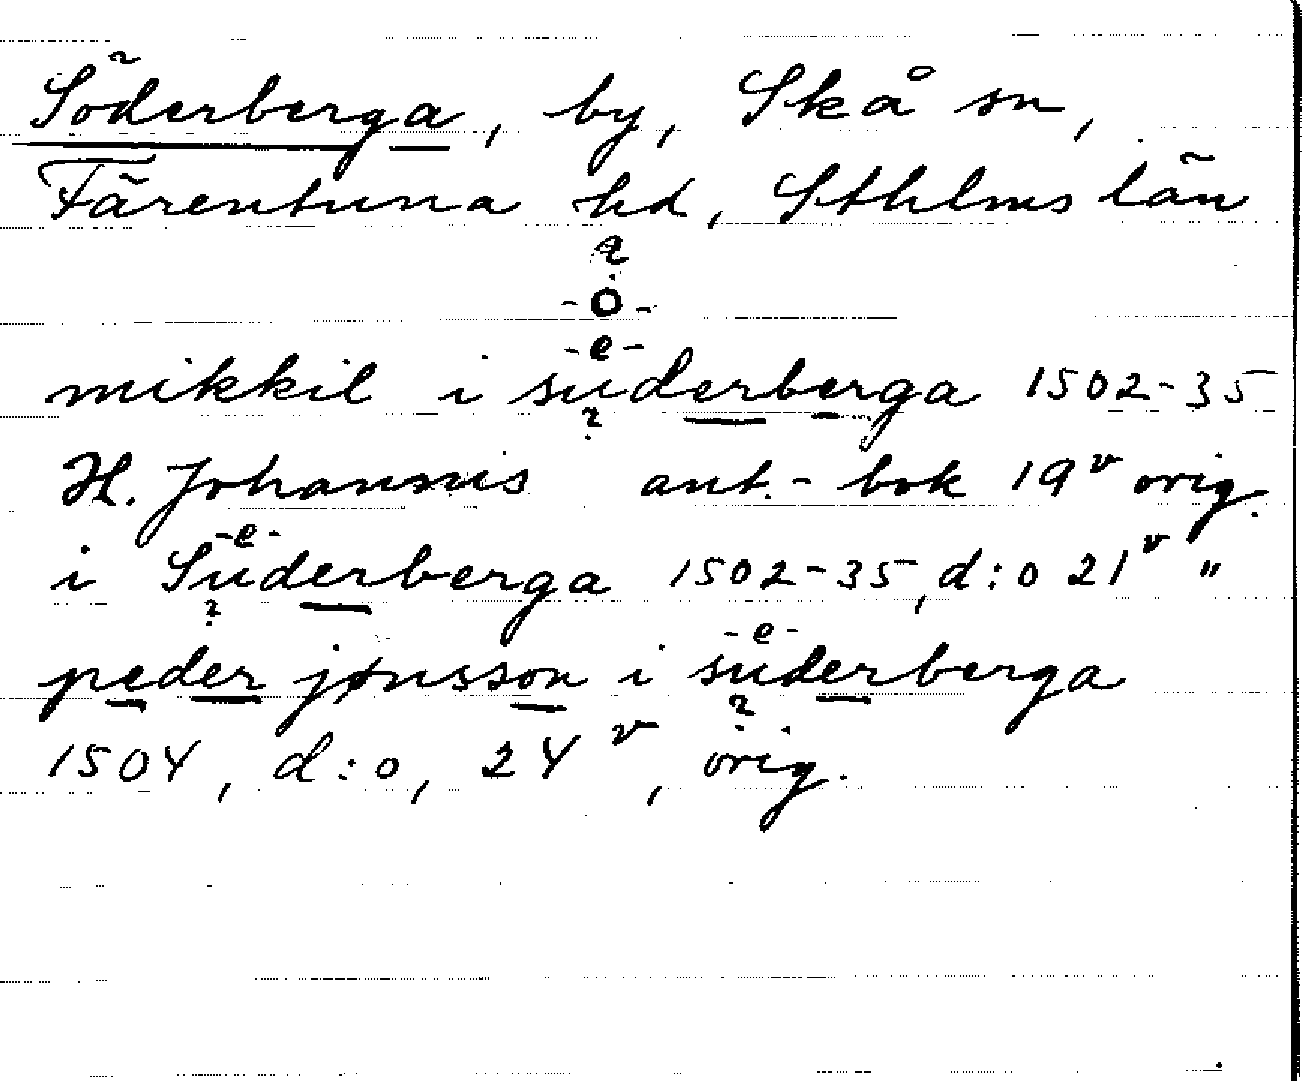 Söderberga, by, Skå sn,
Färentuna hd, Sthlms län
?
-o-
-e-
mikkil i suderberga 1502-35
?
H. Johannis ant.-bok 19v orig.
-e-
i Suderberga 1502-35, d:o 21v "
?
-e-
peder jønsson i suderberga
?
1504, d:o, 24v, orig.